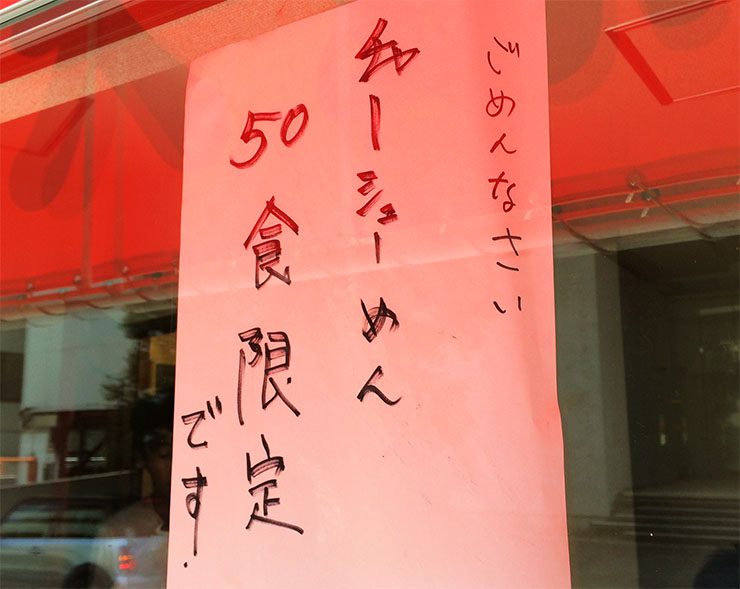 ごめんなさい
チャーシューめん
50食限定
です.